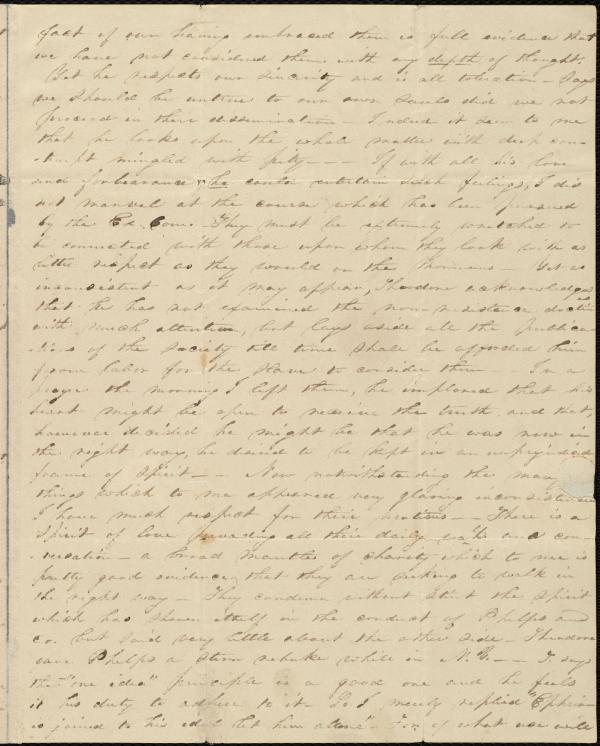 fact of our having embraced them is full evidence that
we have not considered them with any depth of thought.
Yet he respects our sincerity and is all toleration – Says
we should be untrue to our own souls did we not
proceed in their dissemination – Indeed it seems to me
that he looks upon the whole matter with deep con-
-tempt mingled with pity – – – If with all his love
and forbearance he could entertain such feelings, I do
not marvel at the course which has been pursued
by the Ed. Com. – They must be extremely wretched to
be connected with those upon whom they look with as
little respect as they would on the Mormons – Yet as
inconsistent as it may appear, Theodore acknowledges
that he has not examined the non-resistance doctrine
with much attention, but lays aside all the publica-
-tions of the society till time shall be afforded him
from labor for the slave to consider them – In a
prayer the morning I left them, he implored that his
heart might be open to receive the truth and that,
however decided he might be that he was now in
the right way, he desired to be kept in an unprejudiced
frame of spirit – – Now notwithstanding the many
things which to me appeared very glaring inconsistencies
I have much respect for their motives – – There is a
spirit of love pervading all their daily walk and con-
-versation – a broad mantle of charity which to me is
pretty good evidence that they are seeking to walk in
the right way – They condemn without stint the spirit
which has shown itself in the conduct of Phelps and
co. but said very little about the other side – Theodore
gave Phelps a stern rebuke while in N.Y. – – T. says
the "one idea" principle is a good one and he feels
it his duty to adhere to it – So I merely replied "Ephraim
is joined to his idol let him alone" – of what use will